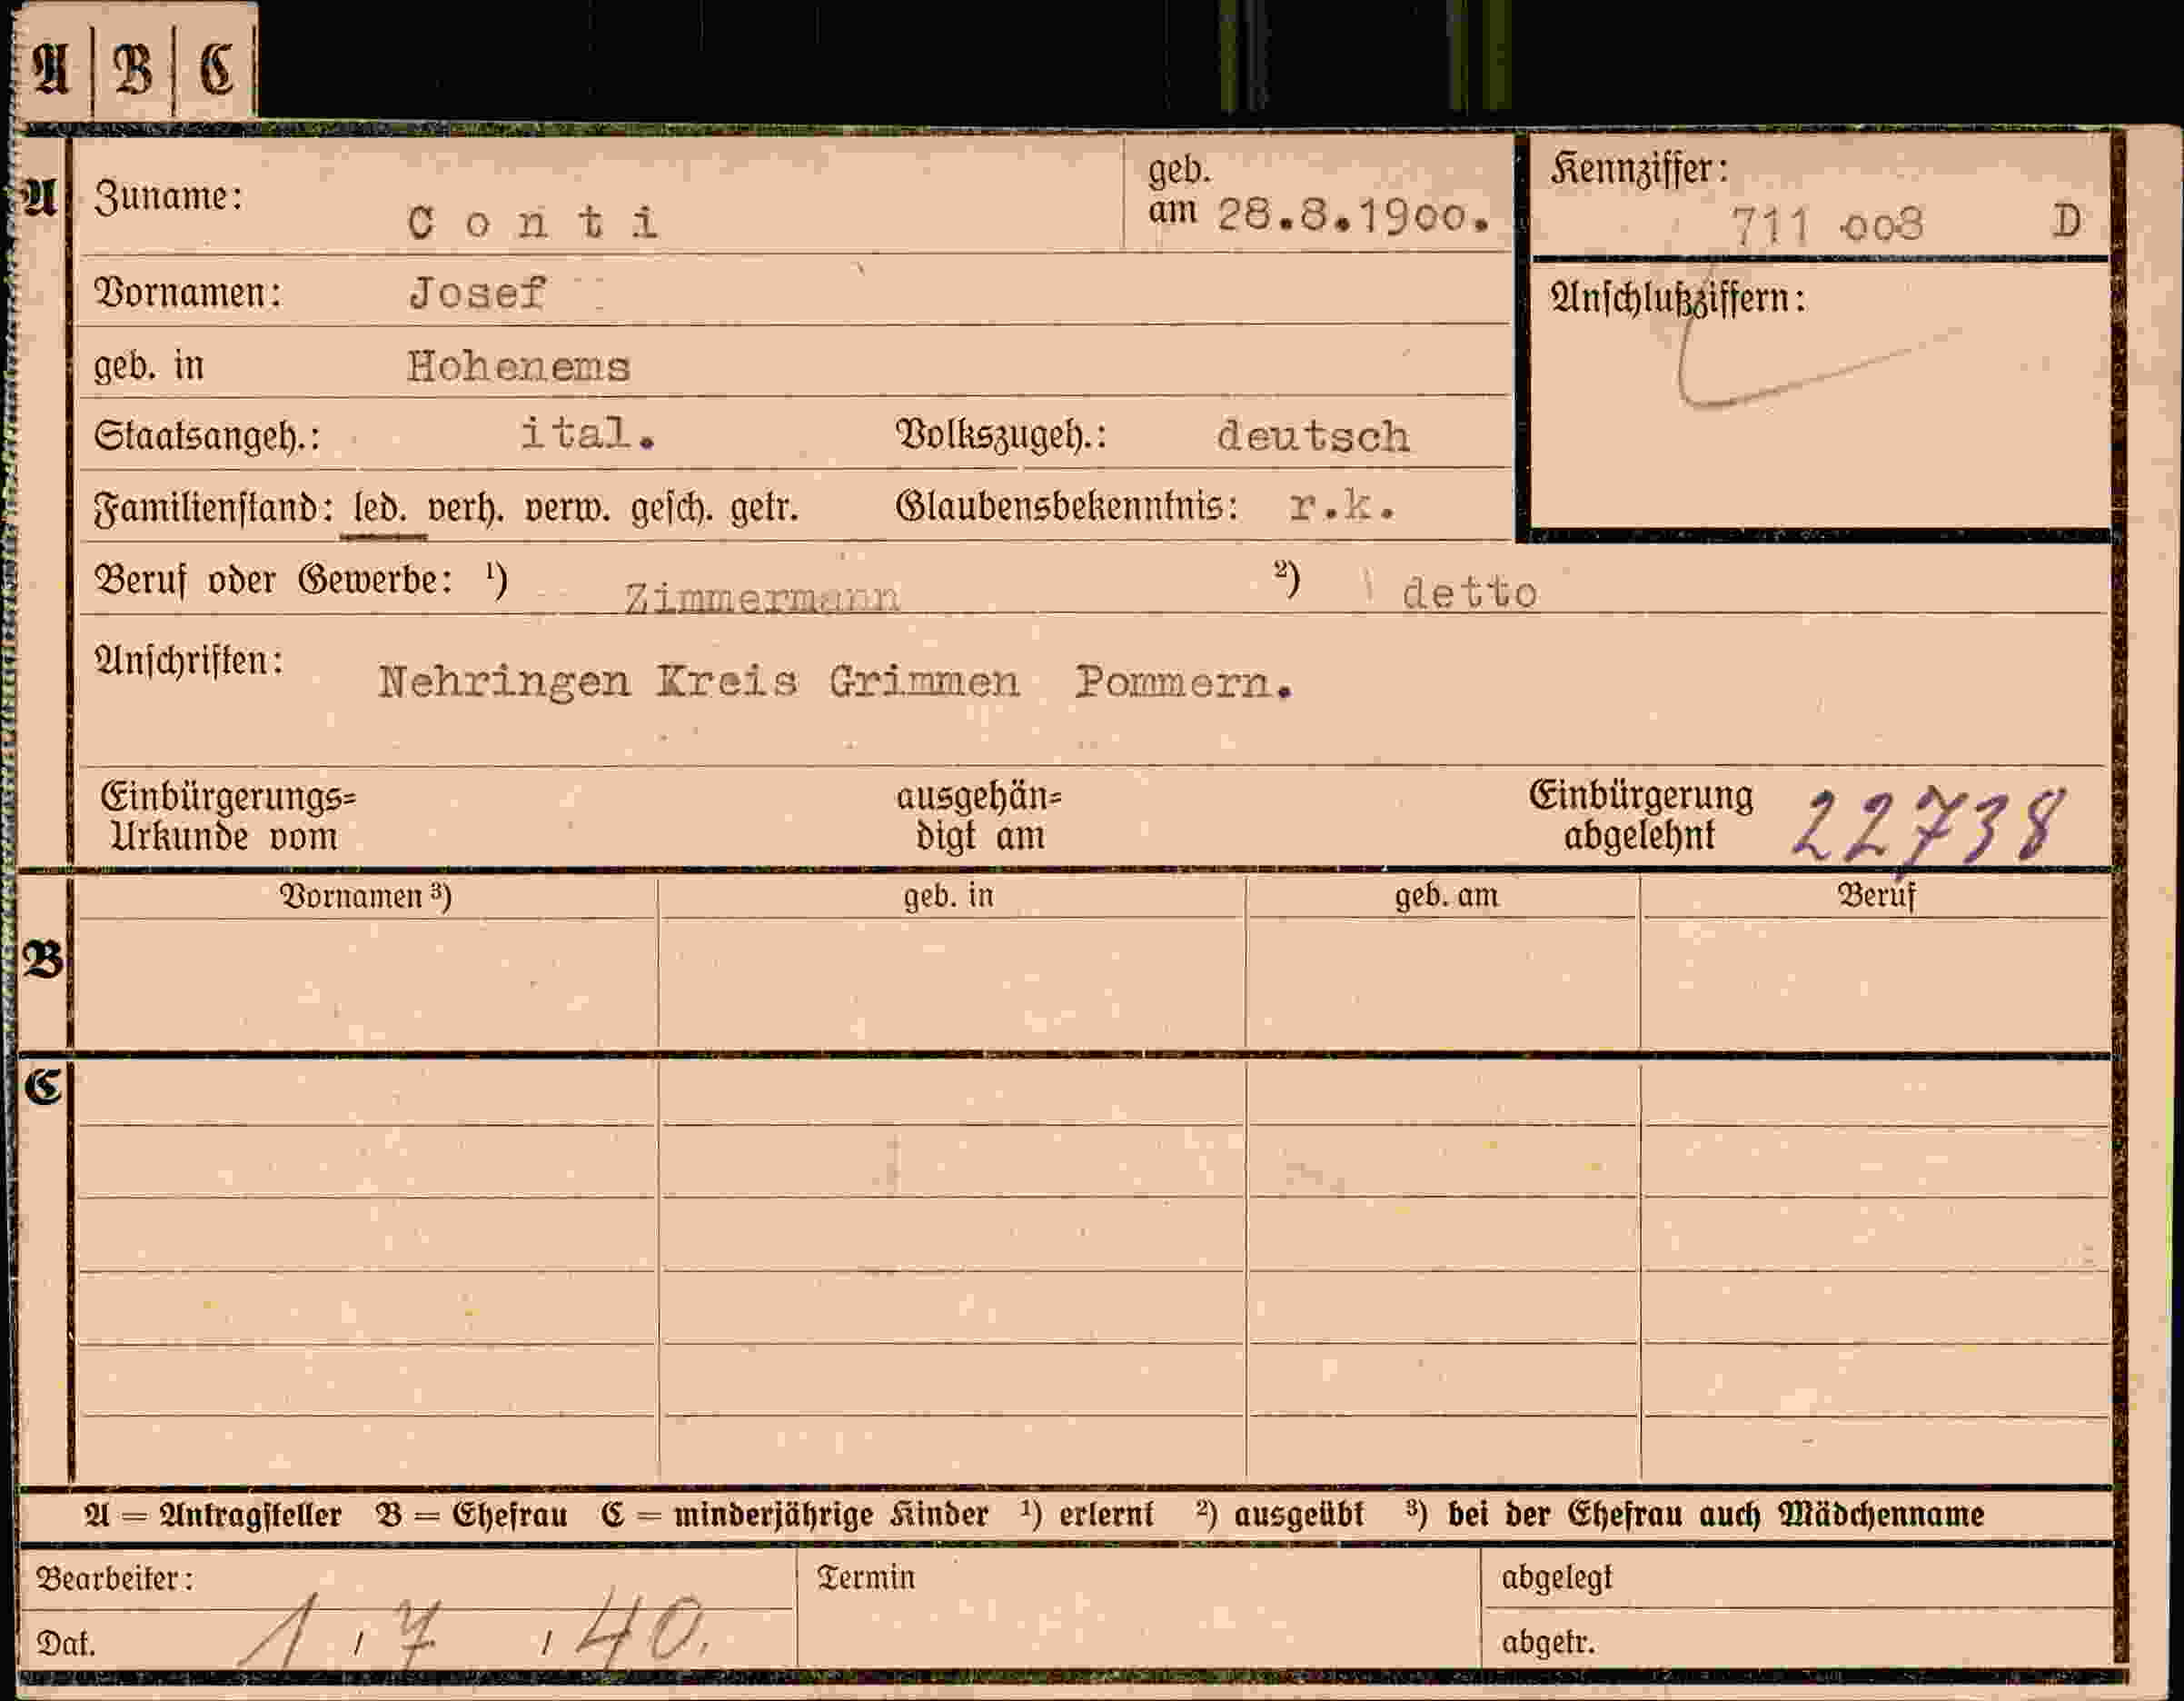 A | B | C
A
Zuname: Conti
geb. am 28.8.1900.
Kennziffer: 711 003 D
Vornamen: Josef
Anschlußziffern:
geb. in Hohenems
Staatsangeh.: ital. Volkszugeh.: deutsch
Familienstand: led. verh. verw. gesch. getr. Glaubensbekenntnis: r.k.
Beruf oder Gewerbe: ¹) Zimmermann ²) detto
Anschriften: Nehringen Kreis Grimmen Pommern.
Einbürgerungs= ausgehän= Einbürgerung 22738
Urkunde vom digt am abgelehnt
Vornamen ³) geb. in geb. am Beruf
B
C
A = Antragsteller B = Ehefrau C = minderjährige Kinder ¹) erlernt ²) ausgeübt ³) bei der Ehefrau auch Mädchenname
Bearbeiter: Termin abgelegt
Dat. 1 / 7 / 40. abgetr.